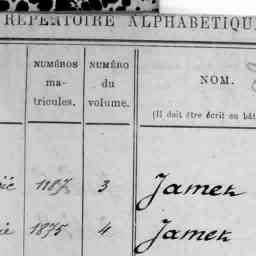 RÉPERTOIRE ALPHABÉTIQU
NUMÉROS
ma-
tricules.
NUMÉRO
du
volume.
NOM.
(Il doit être écrit en bât
1187 3 Jamek
1875 4 Jamek